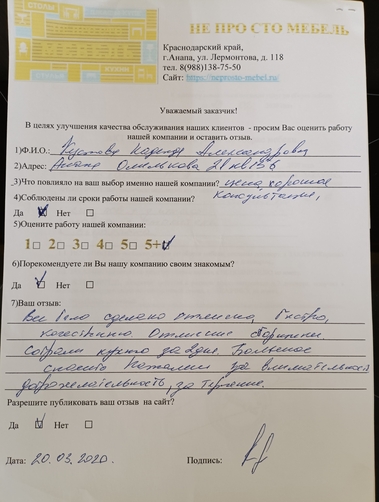 НЕ ПРОСТО МЕБЕЛЬ
Краснодарский край,
г.Анапа, ул. Лермонтова, д. 118
тел. 8(988)138-75-50
Сайт: https://neprosto-mebel.ru/
Уважаемый заказчик!
В целях улучшения качества обслуживания наших клиентов - просим Вас оценить работу
нашей компании и оставить отзыв.
1)Ф.И.О.: Надежда Александровна
2)Адрес: Анапа Омелькова
3)Что повлияло на ваш выбор именно нашей компании? цена, хорошая
консультация,
4)Соблюдены ли сроки работы нашей компании?
Да Нет
5)Оцените работу нашей компании:
1 2 3 4 5 5+
6)Порекомендуете ли Вы нашу компанию своим знакомым?
Да Нет
7)Ваш отзыв:
Все было сделано отлично, быстро,
качественно. Отличные сборщики.
Собрали кухню за 2 дня. Большое
спасибо Наталии за внимательность
доброжелательность, за терпение.
Разрешите публиковать ваш отзыв на сайт?
Да Нет
Дата: 20.03.2020. Подпись: